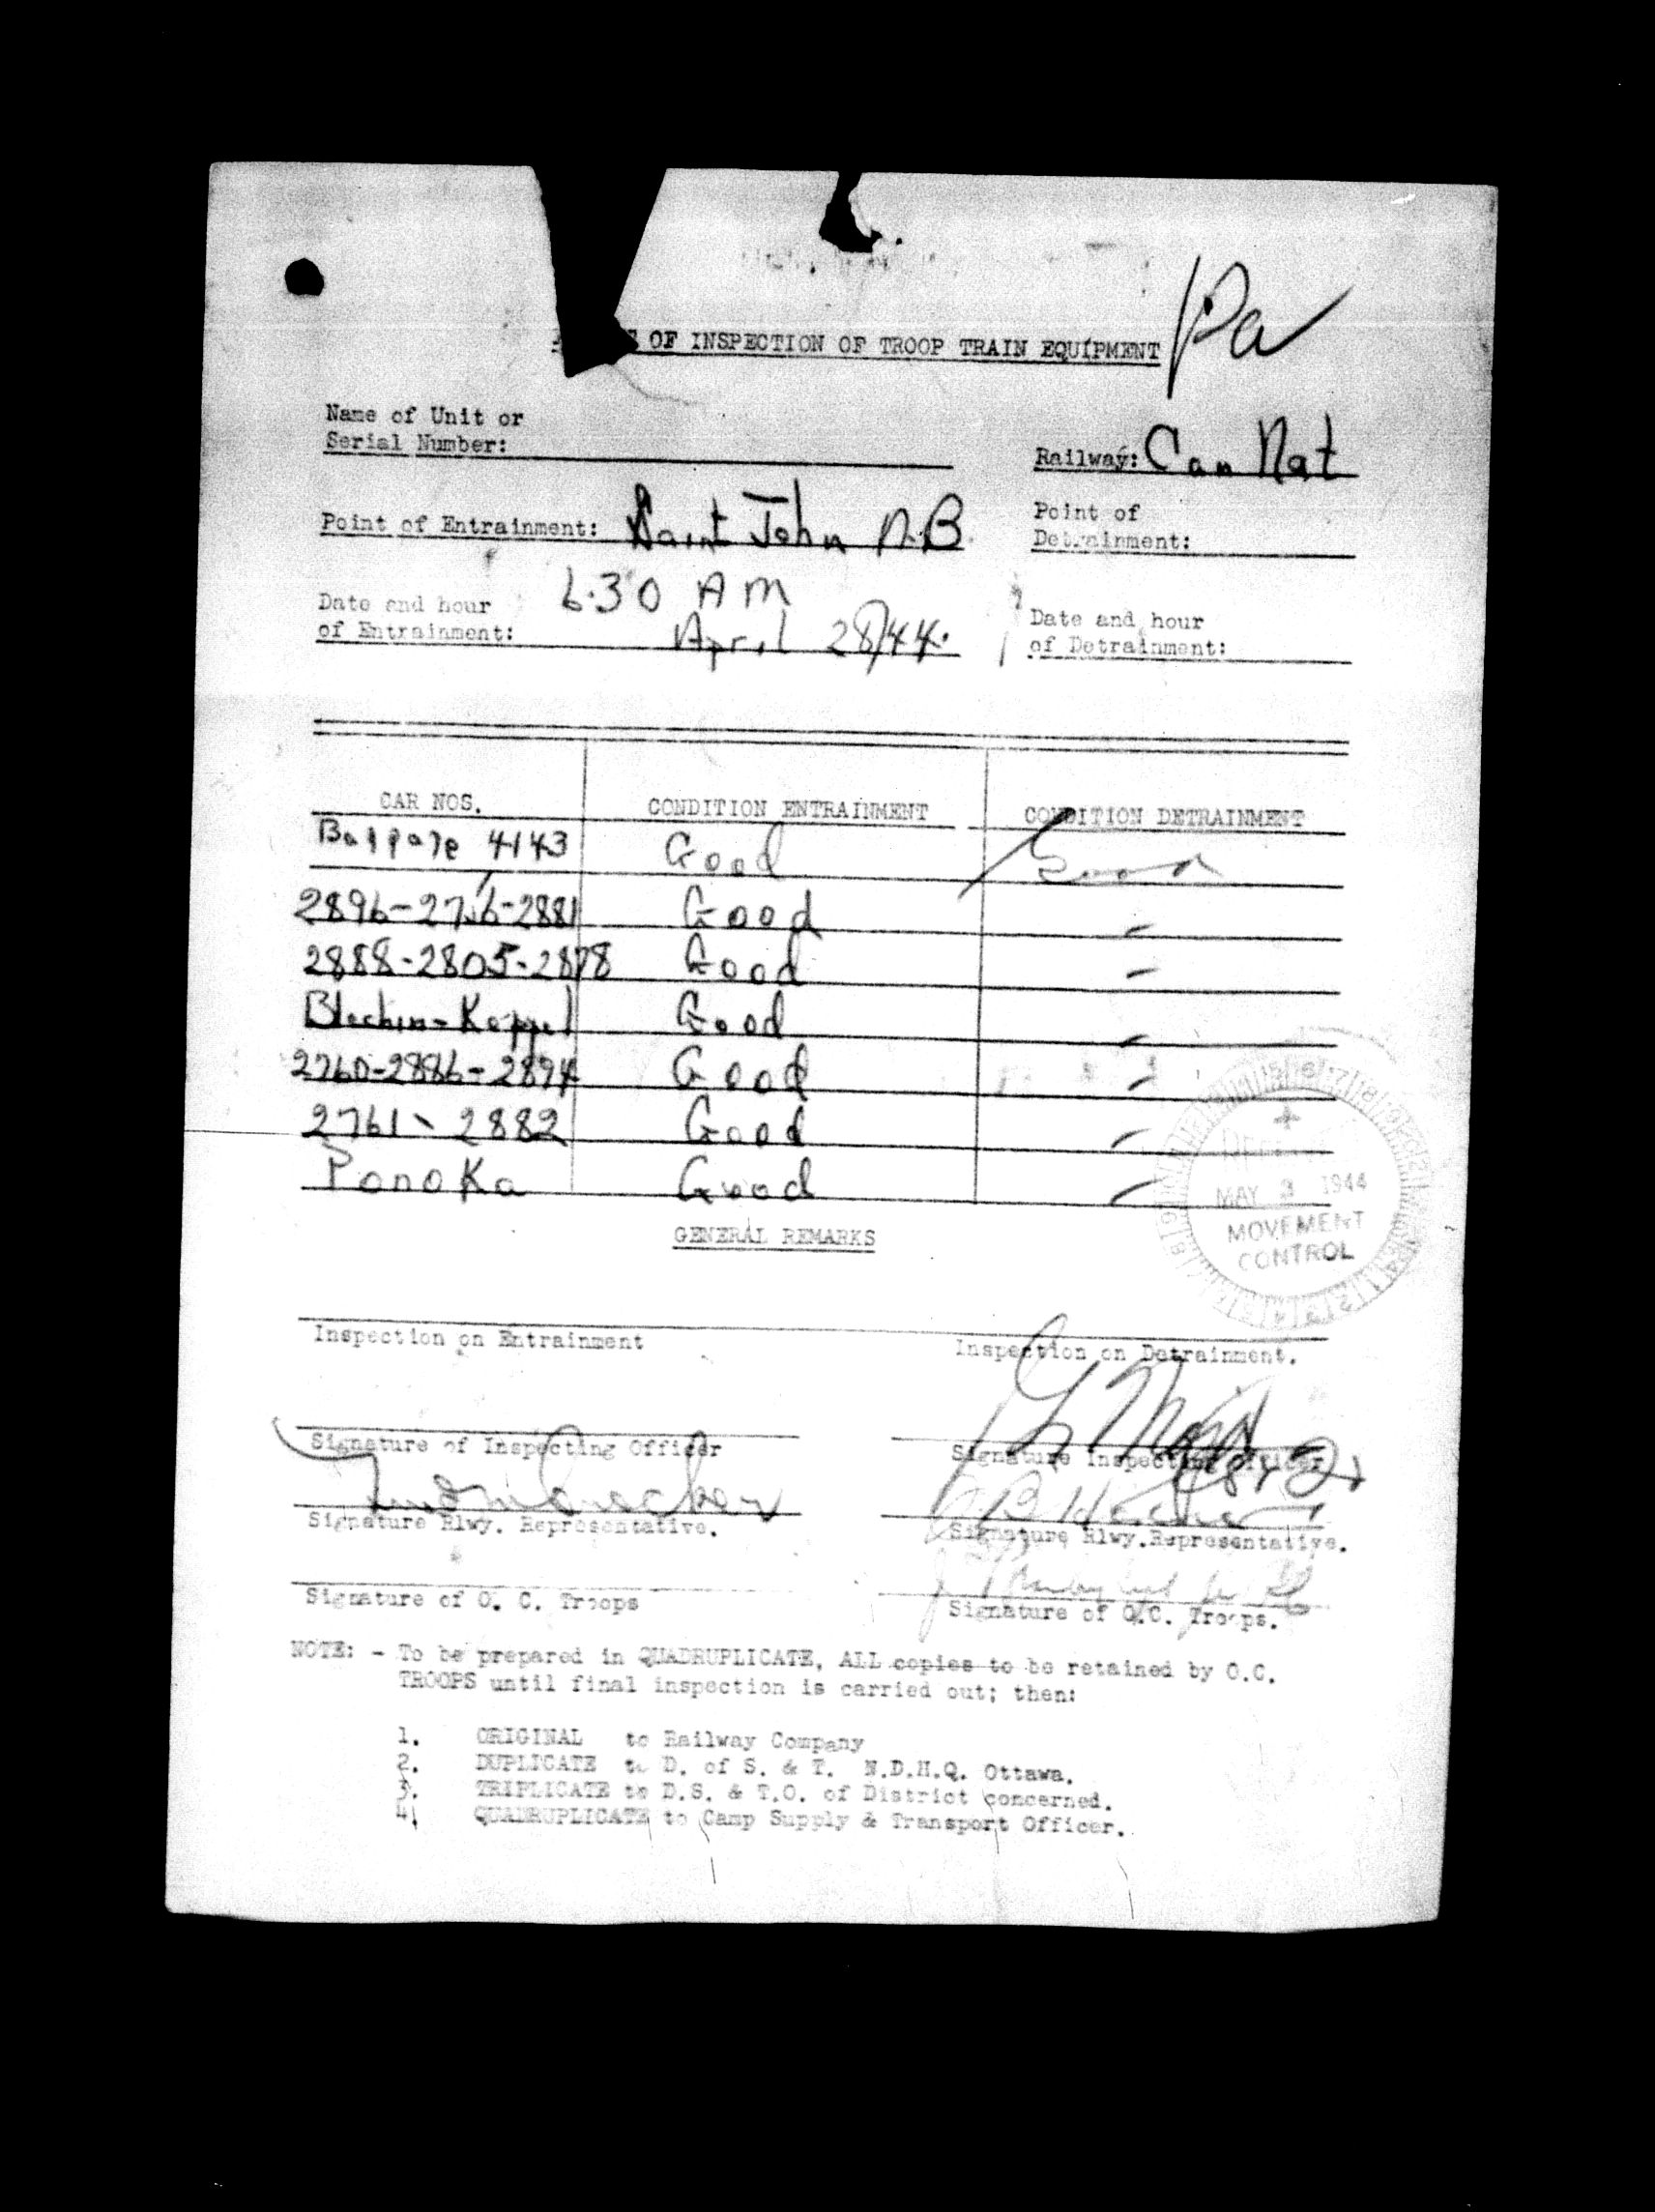 OF INSPECTION OF TROOP TRAIN EQUIPMENT
Pa
Name of Unit or
Serial Number:
Railway: Can Nat
Point of Entrainment: Saint John N.B.
Point of
Detrainment:
Date and hour
of Entrainment: 6.30 AM
April 28/44.
Date and hour
of Detrainment:
CAR NOS. CONDITION ENTRAINMENT CONDITION DETRAINMENT
4143 Good Good
2896- -2881 Good
2888-2805-2878 Good
Good
2760-2886-2894 Good
2761 - 2882 Good
Ponoka Good
MAY 3 1944
MOVEMENT
CONTROL
GENERAL REMARKS
Inspection on Entrainment
Inspection on Detrainment.
Signature of Inspecting Officer
Signature Inspecting Officer
Signature Rlwy. Representative.
Signature Rlwy.Representative.
Signature of O. C. Troops
Signature of O.C. Troops.
NOTE: - To be prepared in QUADRUPLICATE, ALL copies to be retained by O.C.
TROOPS until final inspection is carried out; then:
1. ORIGINAL to Railway Company
2. DUPLICATE to D. of S. & T. N.D.H.Q. Ottawa.
3. TRIPLICATE to D.S. & T.O. of District concerned.
4. QUADRUPLICATE to Camp Supply & Transport Officer.